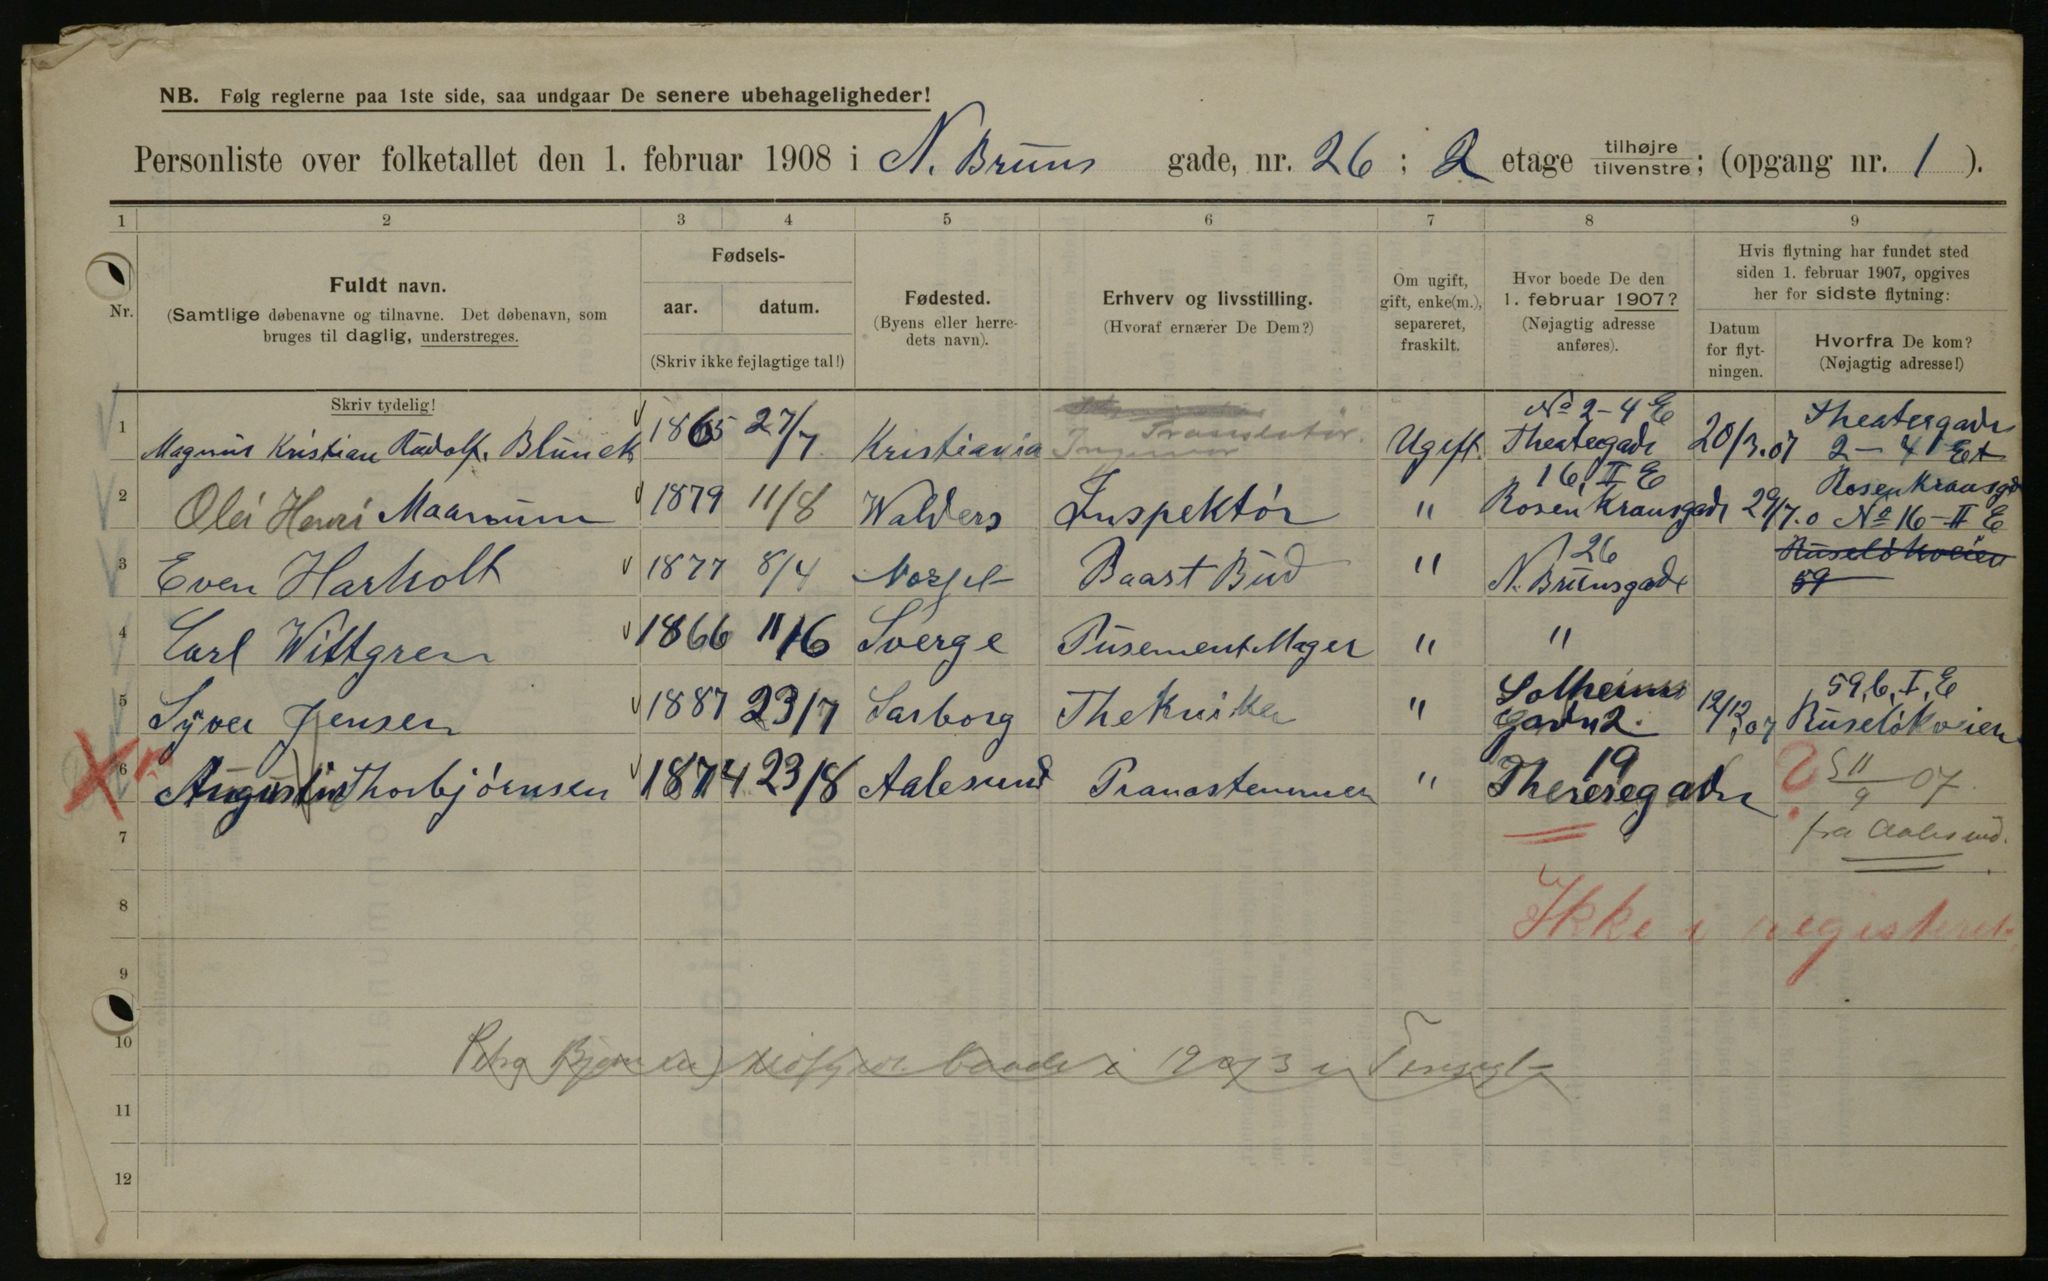 NB. Følg reglerne paa 1ste side, saa undgaar De senere ubehageligheder!
Personliste over folketallet den 1. februar 1908 i N. Bruns gade, nr. 26 ; 2 etage tilhøjre tilvenstre; (opgang nr. 1 ).
1 2 3 4 5 6 7 8 9
Nr.
Fuldt navn.
(Samtlige døbenavne og tilnavne. Det døbenavn, som
bruges til daglig, understreges.
Skriv tydelig!
Fødsels-
aar. datum.
(Skriv ikke fejlagtige tal!)
Fødested.
(Byens eller herre-
dets navn).
Erhverv og livsstilling.
(Hvoraf ernærer De Dem?)
Om ugift,
gift, enke(m.),
separeret,
fraskilt.
Hvor boede De den
1. februar 1907?
(Nøjagtig adresse
anføres).
Hvis flytning har fundet sted
siden 1. februar 1907, opgives
her for sidste flytning:
Datum
for flyt-
ningen.
Hvorfra De kom?
(Nøjagtig adresse!)
No 2-4 E Theatergade
1 Magnus Kristian Rudolf. Blunck 1865 27/7 Kristiania Translatør. Ugift. Theatergade 20/3.07 2-4 Et
16 II E Rosenkransgd
2 Olei Henri Maarnum 1879 11/8 Walders Inspektør " Rosenkransgade 29/7.0 No 16-II E
26 Ruseløkveien
3 Even Harholt 1877 8/4 Norge Baart Bud " N. Brunsgade 59
4 Carl Wittgren 1866 11/6 Sverge Pusement Mager " "
Solheims 59,b, I, E
5 Syver Jensen 1887 23/7 Sarborg Thekniker " Gadn 2. 12/12,07 Ruseløkveien
19
6 Augustin Thorbjørnsen 1874 23/8 Aalesund Pianostemmer " Theresegade 11/9 07.
7 fra Aalesund.
8 Ikke i registeret.
9
10 i
11
12